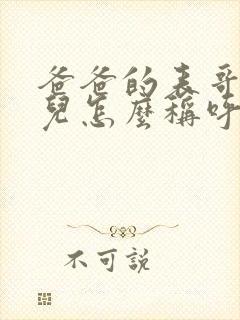 爸爸的表哥
兒怎麼稱呼
不可說